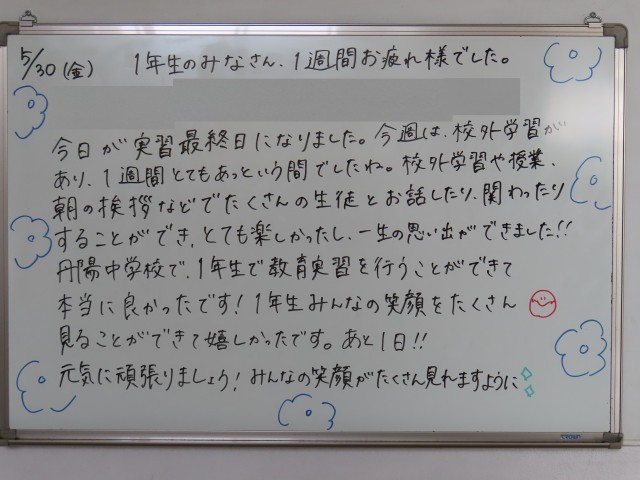 5/30(金) 1年生のみなさん、1週間お疲れ様でした。
今日が実習最終日になりました。今週は、校外学習が
あり、1週間とてもあっという間でしたね。校外学習や授業、
朝の挨拶などでたくさんの生徒とお話したり、関わったり
することができ、とても楽しかったし、一生の思い出ができました!!
丹陽中学校で、1年生で教育実習を行うことができて
本当に良かったです!1年生みんなの笑顔をたくさん
見ることができて嬉しかったです。あと1日!!
元気に頑張りましょう!みんなの笑顔がたくさん見れますように